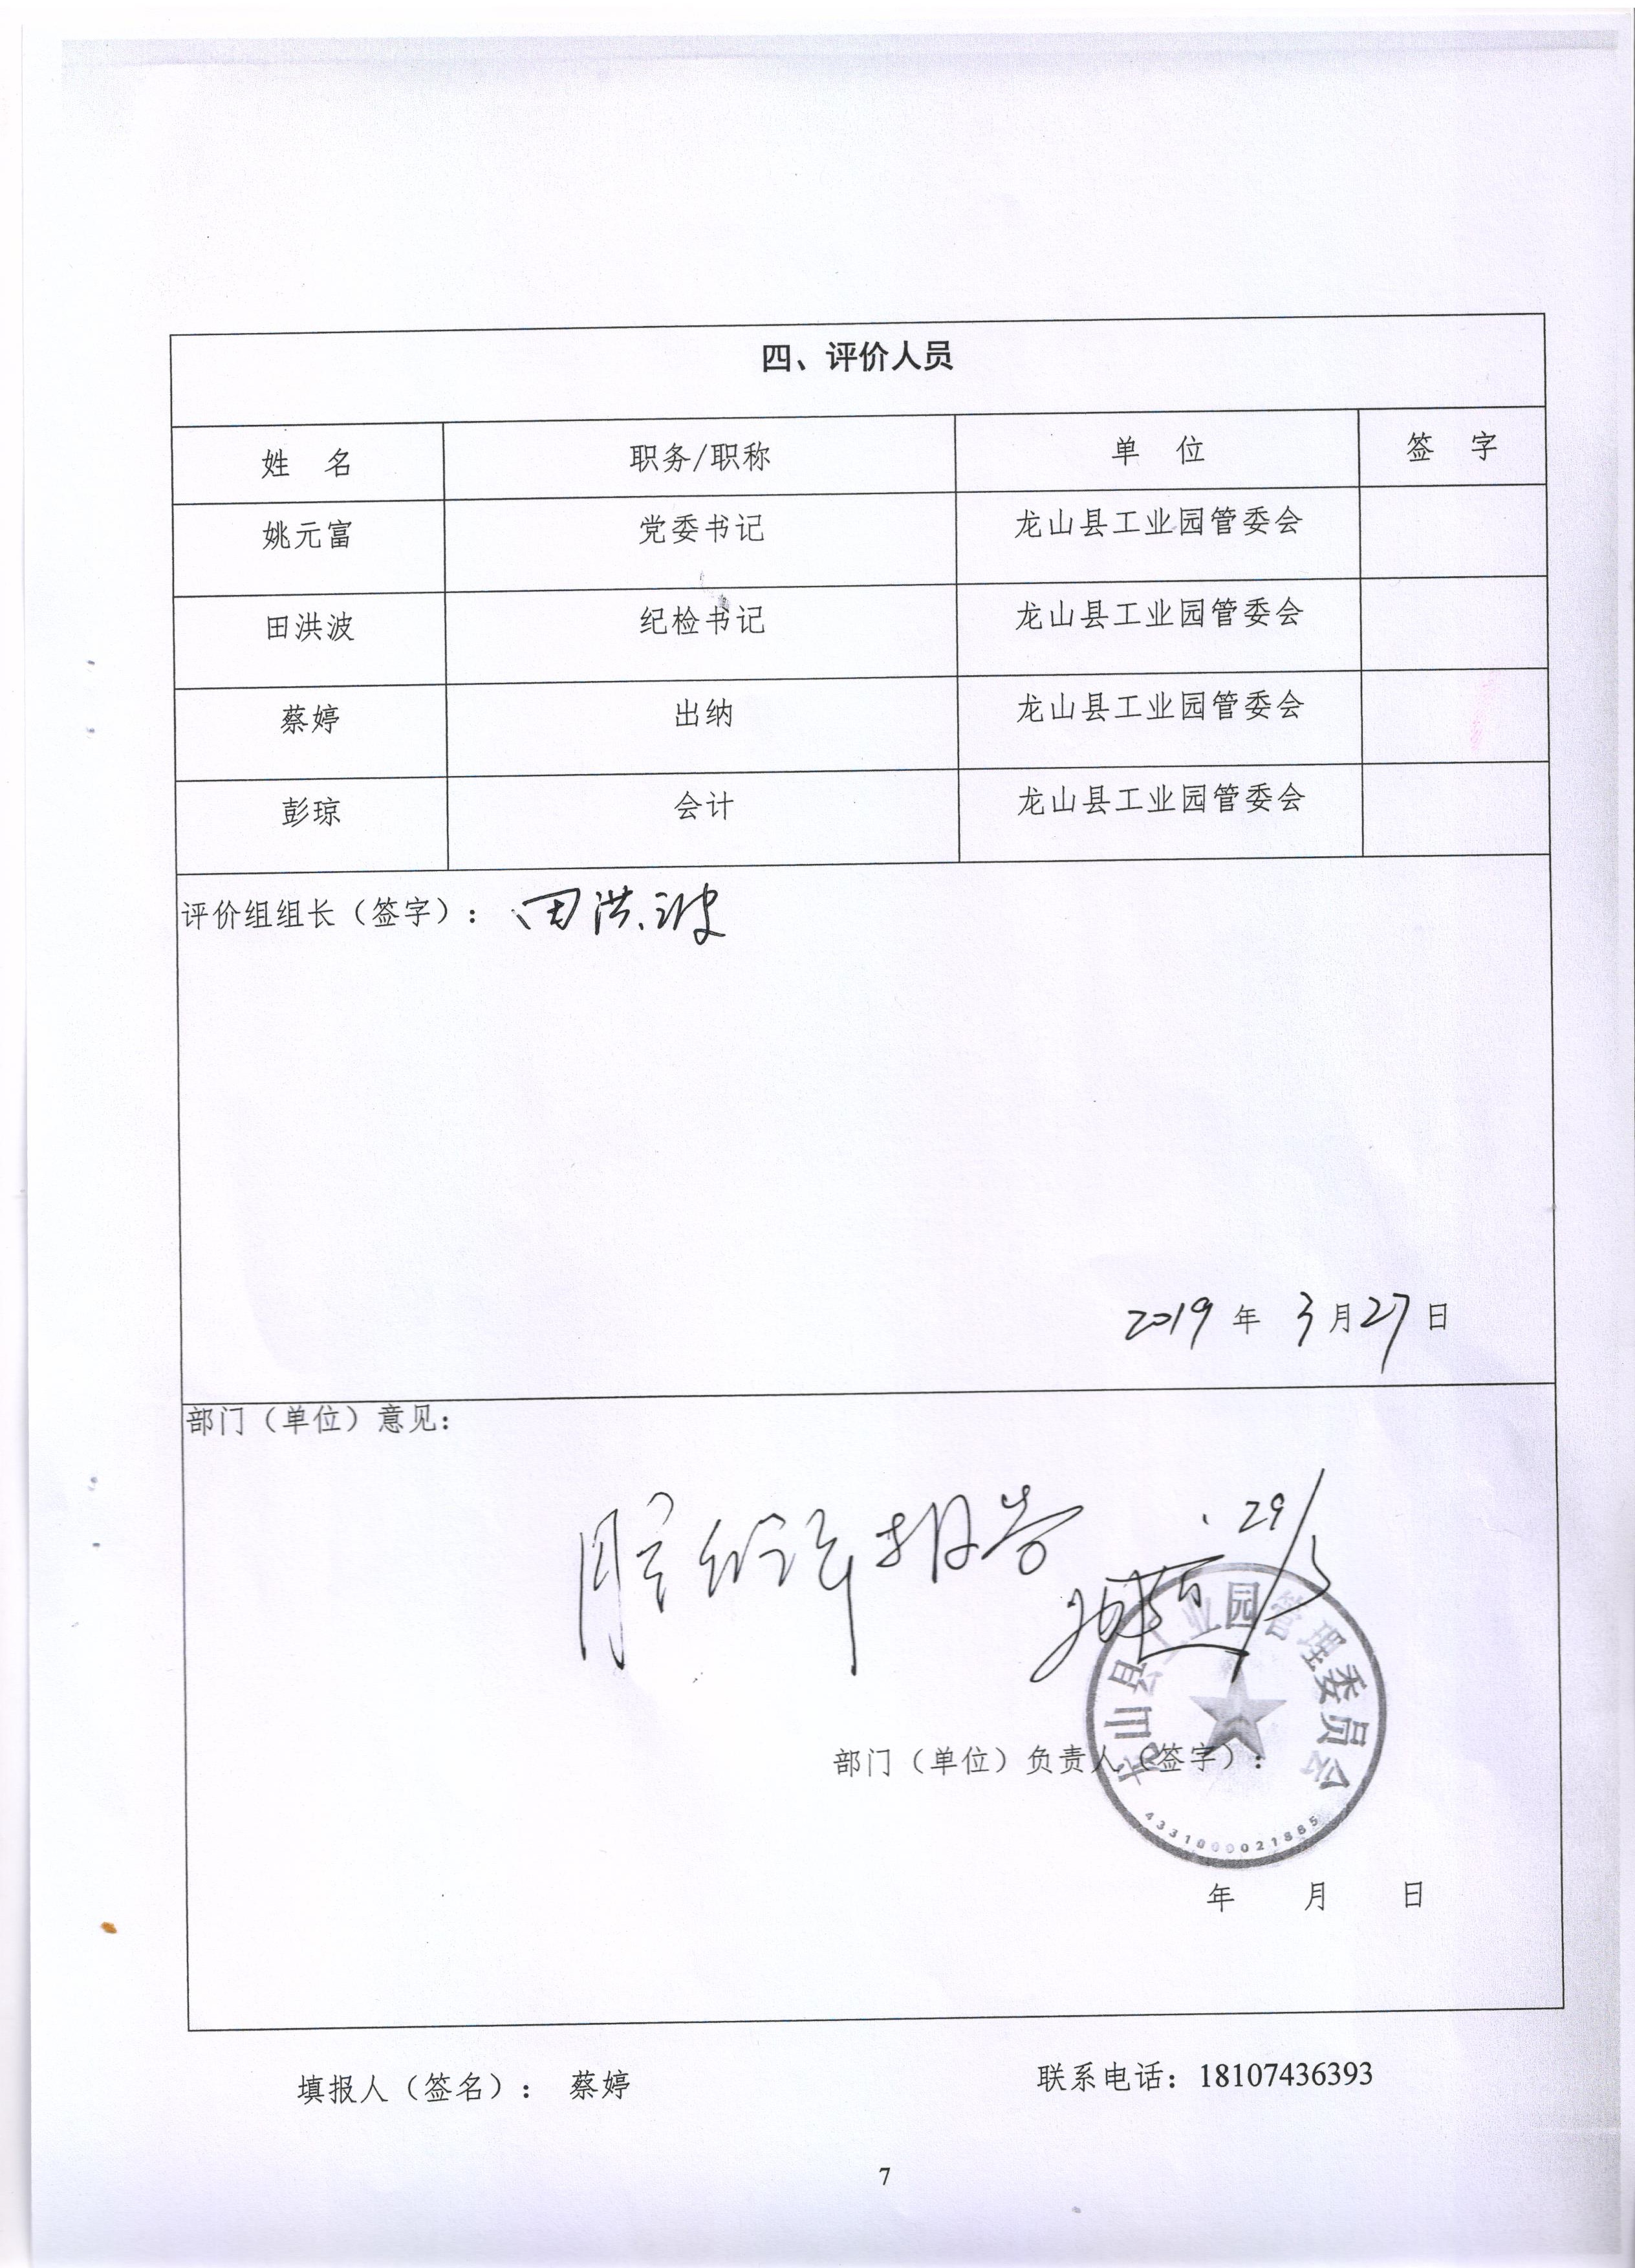 四、评价人员
姓 名 职务/职称 单 位 签 字
姚元富 党委书记 龙山县工业园管委会
田洪波 纪检书记 龙山县工业园管委会
蔡婷 出纳 龙山县工业园管委会
彭琼 会计 龙山县工业园管委会
评价组组长（签字）： 田洪波
2019 年 3 月 27 日
部门（单位）意见：
报告
29/3
龙山县工业园管理委员会
部门（单位）负责人（签字）：
4331000021885
年 月 日
填报人（签名）： 蔡婷 联系电话：18107436393
7